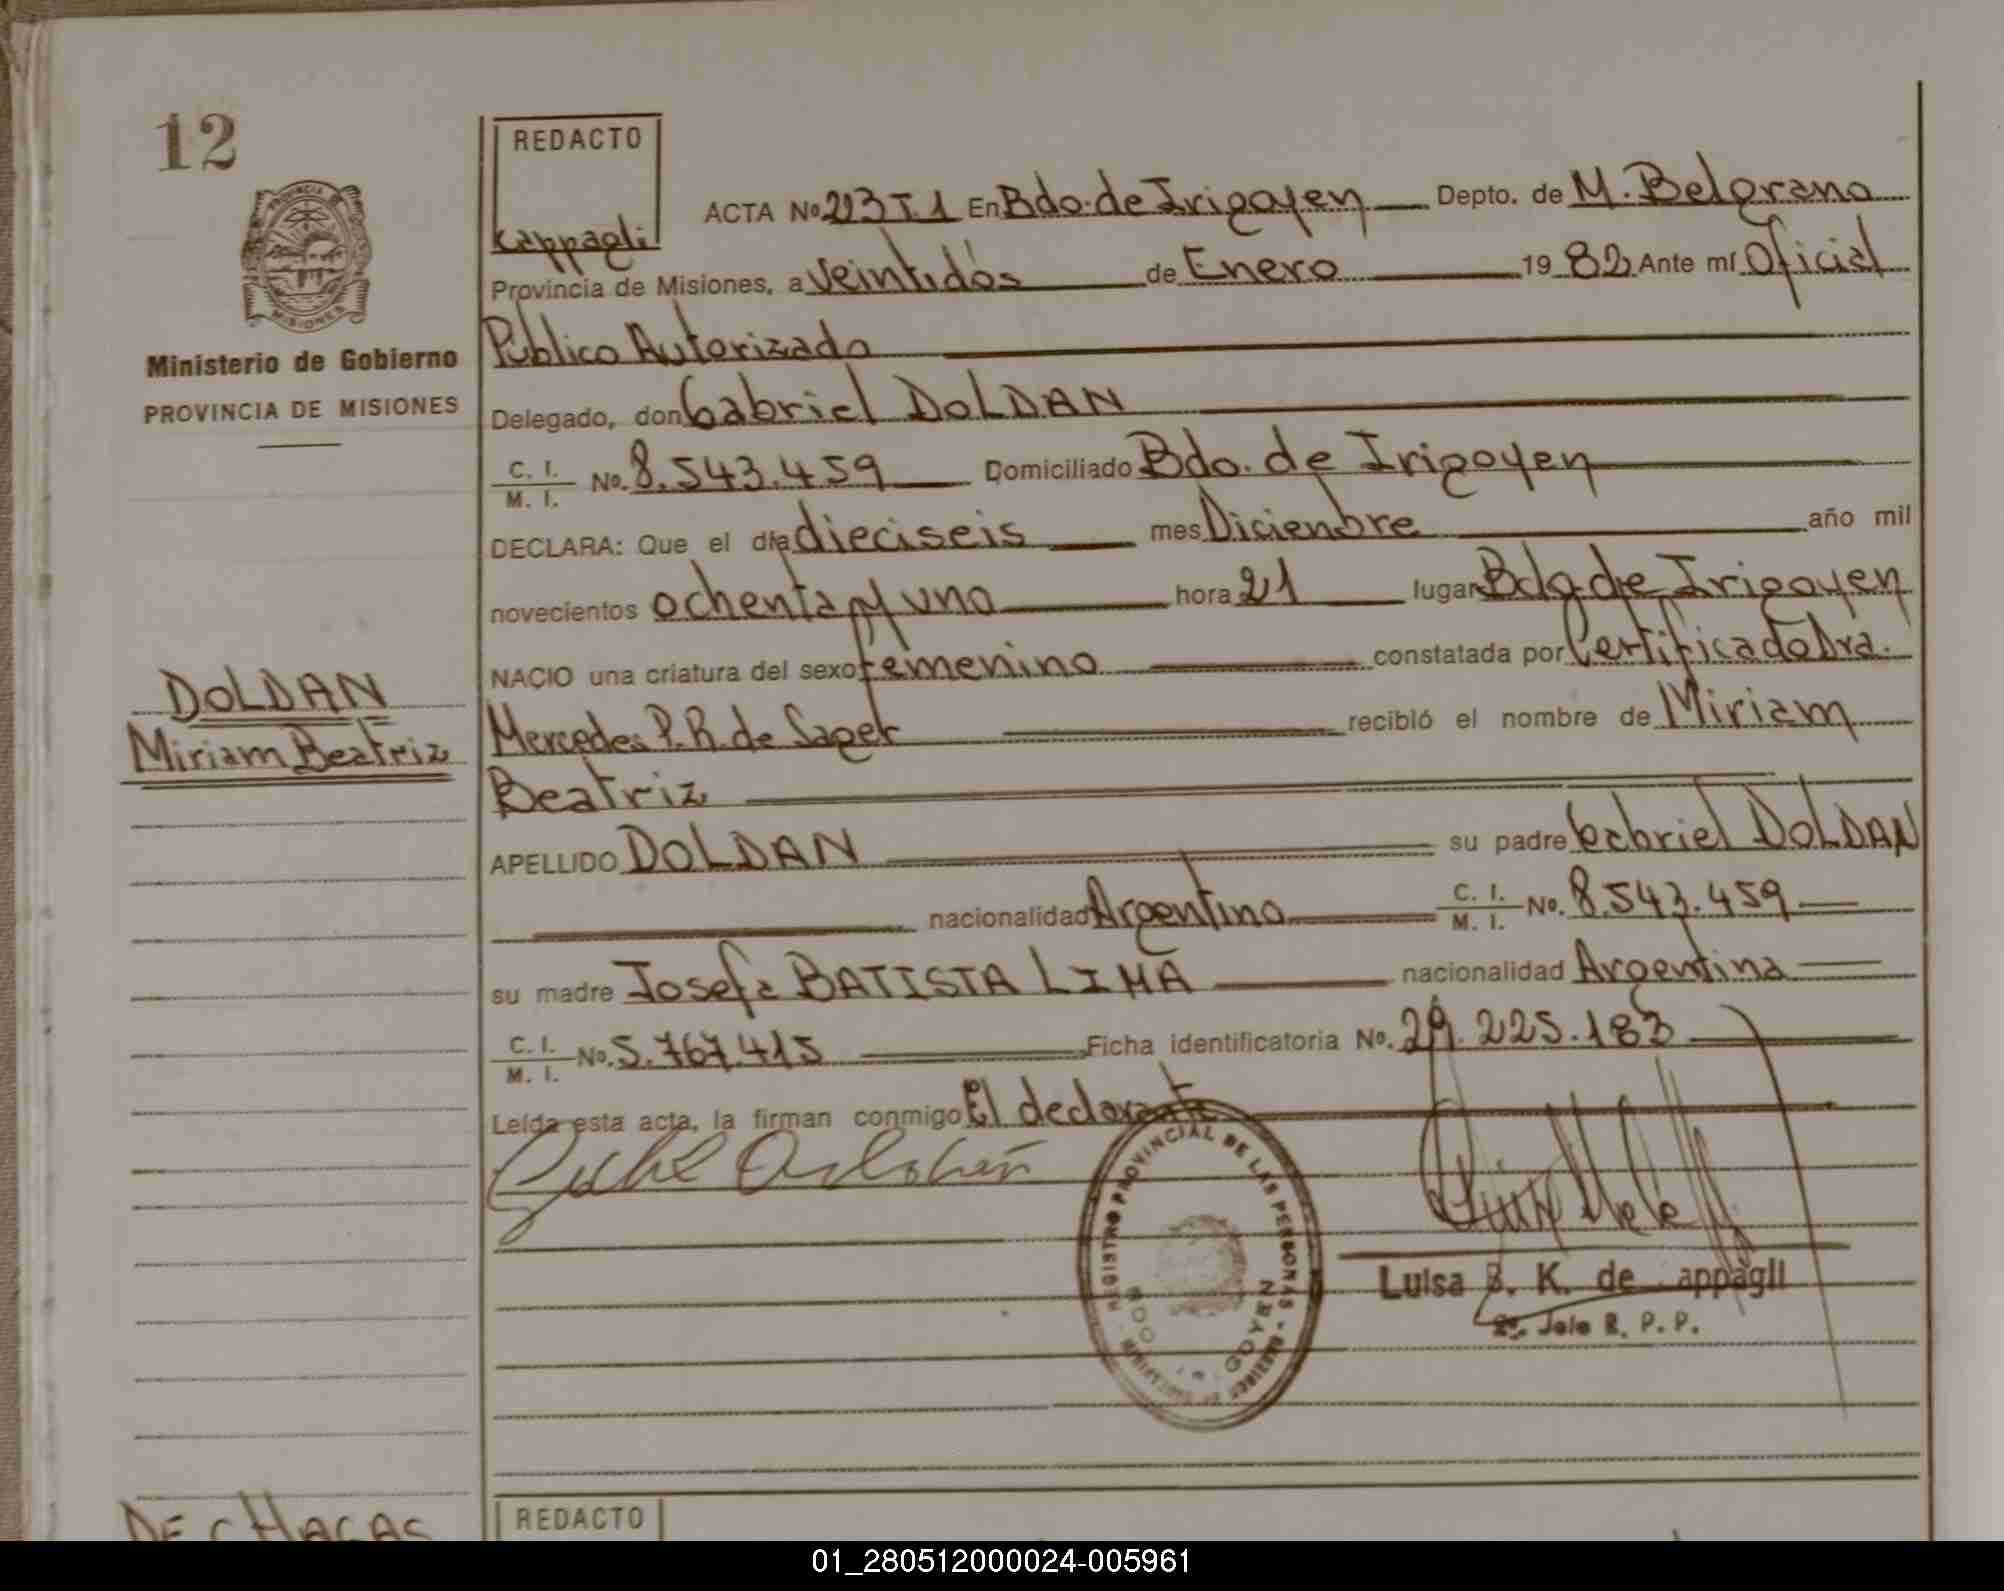 12
REDACTO
Cappagli
PROVINCIA
MISIONES
Ministerio de Gobierno
PROVINCIA DE MISIONES
ACTA No 213 T.1 En Bdo. de Irigoyen Depto. de M. Belgrano
Provincia de Misiones, a Veintidós de Enero 19 82 Ante mí Oficial
Público Autorizado
Delegado, don Gabriel DOLDAN
C. I.
M. I.
No. 8.543.459 Domiciliado Bdo. de Irigoyen
DECLARA: Que el día dieciseis mes Diciembre año mil
novecientos ochenta y uno hora 21 lugar Bdo. de Irigoyen
NACIO una criatura del sexo femenino constatada por Certificado Dra.
Mercedes P. R. de Saget recibió el nombre de Miriam
Beatriz
DOLDAN
Miriam Beatriz
APELLIDO DOLDAN su padre Gabriel DOLDAN
nacionalidad Argentino C. I. M. I. No. 8.543.459
su madre Josefa BATISTA LIMA nacionalidad Argentina
C. I.
M. I.
No. 5.767.415 Ficha identificatoria No. 29.225.183
Leída esta acta, la firman conmigo El declarante
REGISTRO PROVINCIAL DE LAS PERSONAS
GOYEN
Luisa B. K. de appagli
2º. Jefe R. P. P.
DE CHAGAS
REDACTO
01_280512000024-005961